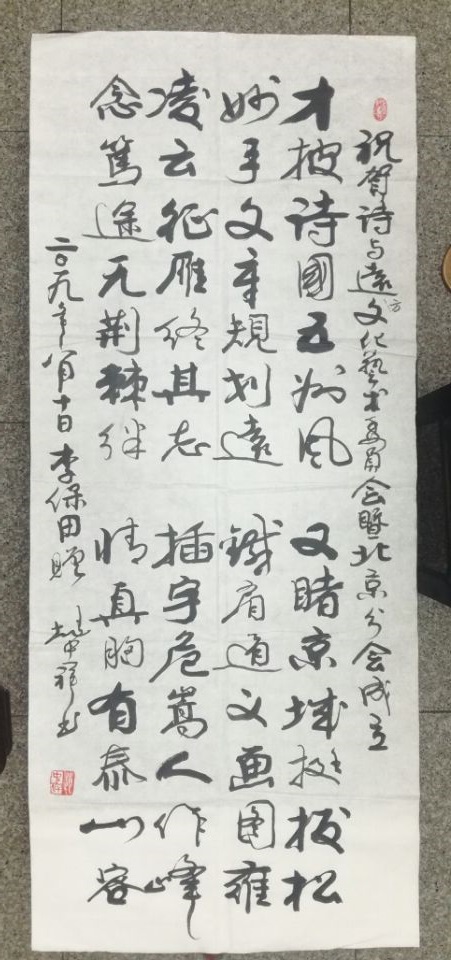 祝贺诗与远方文化艺术委员会暨北京分会成立
才披诗國五洲风 又睹京城挺拔松
妙手文章規划遠 鐵肩道义画图雍
凌云征雁终其志 插宇危嵩人作峰
念篤途无荆棘绊 情真胸有泰山容
二〇一九年八月十日 李保田赠 赵中祥书